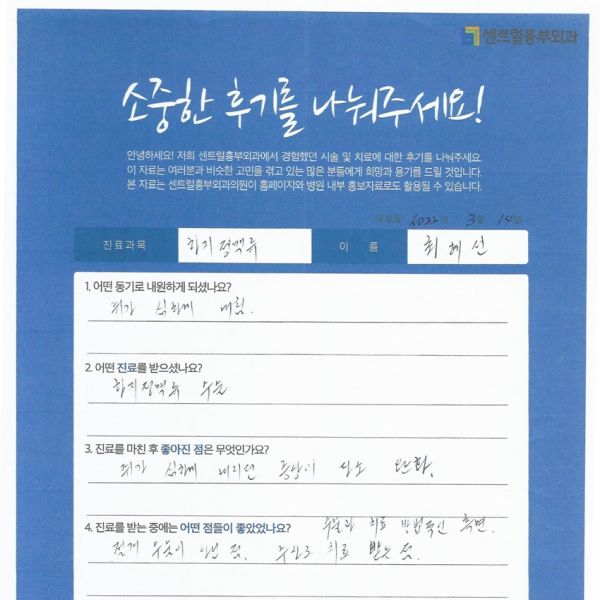 센트럴흉부외과
소중한 후기를 나눠주세요!
안녕하세요! 저희 센트럴흉부외과에서 경험했던 시술 및 치료에 대한 후기를 나눠주세요
이 자료는 여러분과 비슷한 고민을 겪고 있는 많은 분들에게 희망과 용기를 드릴 것입니다.
본 자료는 센트럴흉부외과의원이 홈페이지와 병원 내부 홍보자료로도 활용될 수 있습니다.
작성일 2022년 3월 14일
진료과목 하지정맥류 이 름 최혜선
1. 어떤 동기로 내원하게 되셨나요?
쥐가 심하게 내림.
2. 어떤 진료를 받으셨나요?
하지정맥류 수술
3. 진료를 마친 후 좋아진 점은 무엇인가요?
쥐가 심하게 내리던 증상이 완화.
4. 진료를 받는 중에는 어떤 점들이 좋았었나요? 수술과 치료 방법적인 측면.
아닌 점. 치료 받는 점.